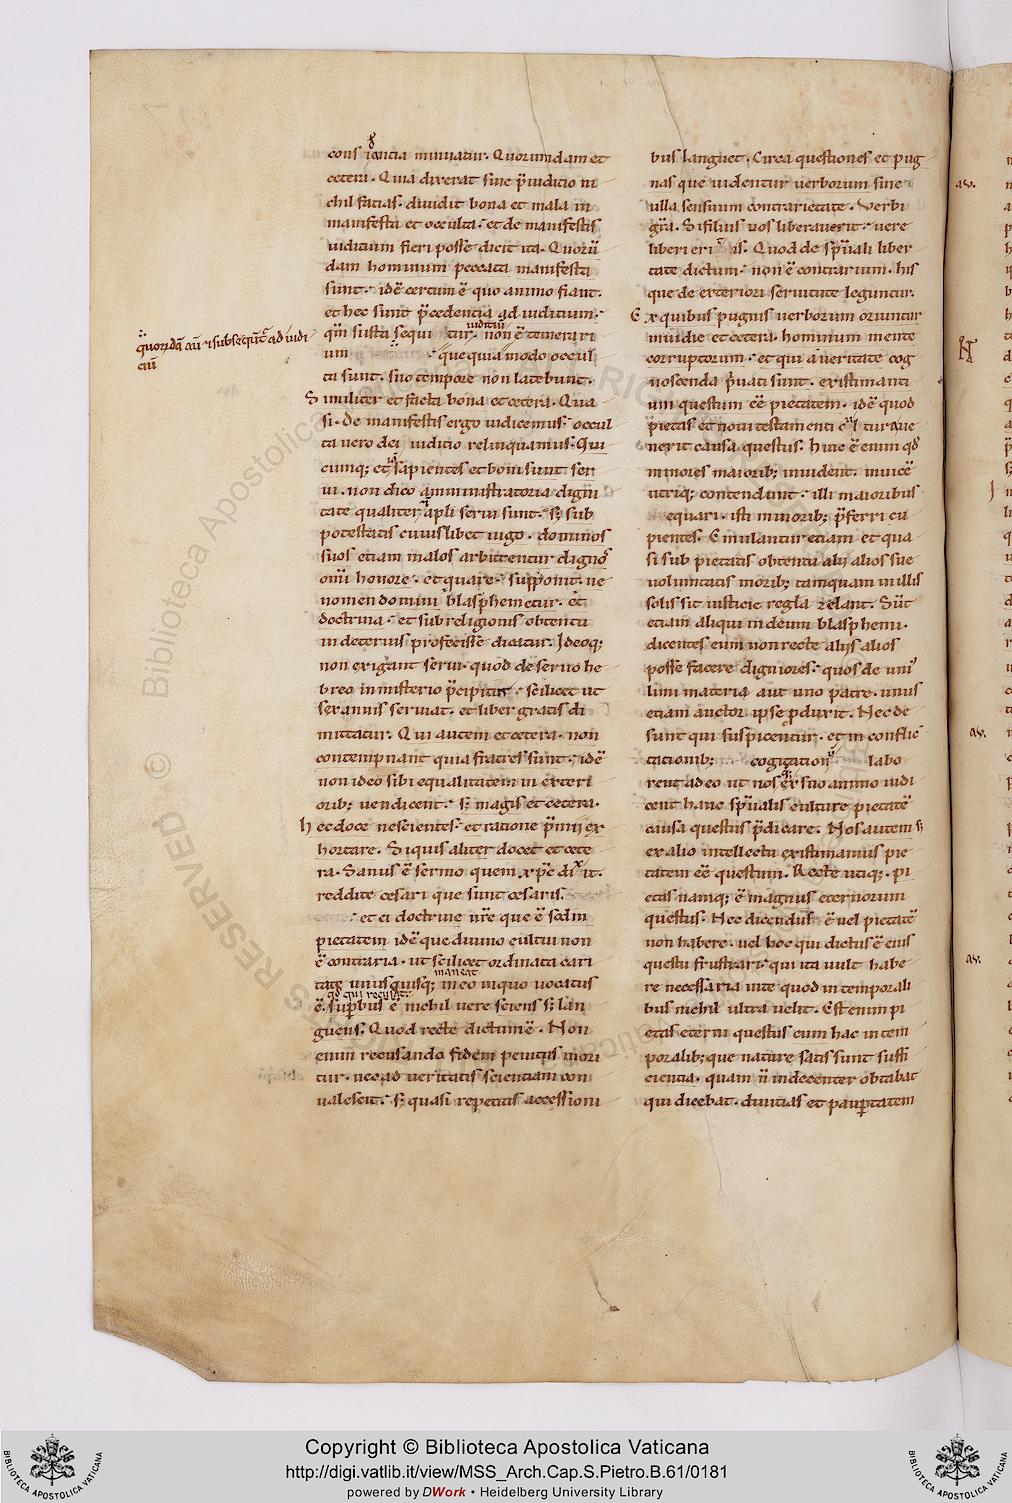 cons ientia minuatur. Quorumdam et
cetera. Quia dixerat sine p̄iudicio ni
chil facias. diuidit bona et mala in
manifesta et occulta. et de manifestis
iudicium fieri posse dicit ita. Quorū
dam hominum peccata manifesta
sunt. idē certum ē quo animo fiant.
et hec sunt p̄cedentia ad iudicium.
qm̄ si ista sequi tur iudiciū non ē temerari
um que quia modo occul
ta sunt. suo tempore non latebunt.
Similiter et facta bona et cetera. Qua
si. de manifestis ergo iudicemus. occul
ta uero dei iudicio relinquamus. Qui
cumq; et sapientes et boni sunt ser
ui. non dico amministratoria digni
tate qualiter apli serui sunt. s; sub
potestatis cuiuslibet iugo. dominos
suos etiam malos arbitrentur dignos
omi honore. et quare. supponit. ne
nomen domini blasphemetur. et
doctrina. et sub religionis obtentu
in deterius profecisse dicatur. Ideoq;
non exigant serui. quod de seruo he
breo in misterio p̄cipitur. scilicet ut
sex annis seruiat. et liber gratis di
mittatur. Qui autem et cetera. non
contempnant quia fratres sunt. idē
non ideo sibi equalitatem in exteri
orib; uendicent. s; magis et cetera.
hec doce nescientes. et ratione p̄mij ex
hortare. Siquis aliter docet et cete
ra. Sanus ē sermo quem xp̄c dixit.
reddite cesari que sunt cesaris.
et ei doctrine nr̄e que ē scdm
pietatem idē que diuino cultui non
ē contraria. ut scilicet ordinata cari
tate unusquisq; maneat in eo in quo uocatus
ē. qd qui recusat. supbus ē nichil uere sciens s; lan
guens. Quod recte dictum ē. Non
enim recusando fidem penitus mori
tur. nec ad ueritatis scientiam con
ualescit. s; quasi repetitis accessioni
quorūdā aū subsequūt ad iudi
ciū
bus languet. Circa questiones et pug
nas que uidentur uerborum sine
ulla sensuum contrarietate. Verbi
gr̄a. Si filius uos liberauerit. uere
liberi eri tis. Quod de spūali liber
tate dictum. non ē contrarium. his
que de exteriori seruitute leguntur.
Ex quibus pugnis uerborum oriuntur
inuidie et cetera. hominum mente
corruptorum. et qui a ueritate cog
noscenda p̄uati sunt. existimanti
um questum eē pietatem. idē quod
pietas et noui testamenti cul tura ue
nerit causa questus. Hinc ē enim qd
minores maiorib; inuident. inuicē
utriq; contendunt. illi maioribus
equari. isti minorib; p̄ferri cu
pientes. Emulantur etiam et qua
si sub pietatis obtentu alij alios sue
uoluntatis morib; tamquam in illis
solis sit iusticie regla zelant. Sūt
etiam aliqui in deum blasphemi.
dicentes eum non recte alijs alios
posse facere digniores. quos de uni
limi materia aut uno patre. unus
etiam auctor ipse produxit. Nec de
sunt qui suspicentur. et in conflic
tationib; cogitationū labo
rent adeo ut nos ex suo animo iudi
cent hanc spūalis culture pietatē
causa questus p̄dicare. Nos autem s;
ex alio intellectu existimamus pie
tatem eē questum. Recte utiq;. pi
etas namq; ē magnus eternorum
questus. Nec dicendus ē uel pietatē
non habere. uel hoc qui dictus ē eius
questu frustrari. qui ita uult habe
re necessaria uite quod in temporali
bus nichil ultra uelit. Est enim pi
etas eterni questus cum hac in tem
poralib; que nature satis sunt suffi
cientia. quam n̄ indecenter obtabat
qui dicebat. diuitias et paupertatem
Copyright © Biblioteca Apostolica Vaticana
http://digi.vatlib.it/view/MSS_Arch.Cap.S.Pietro.B.61/0181
powered by DWork • Heidelberg University Library